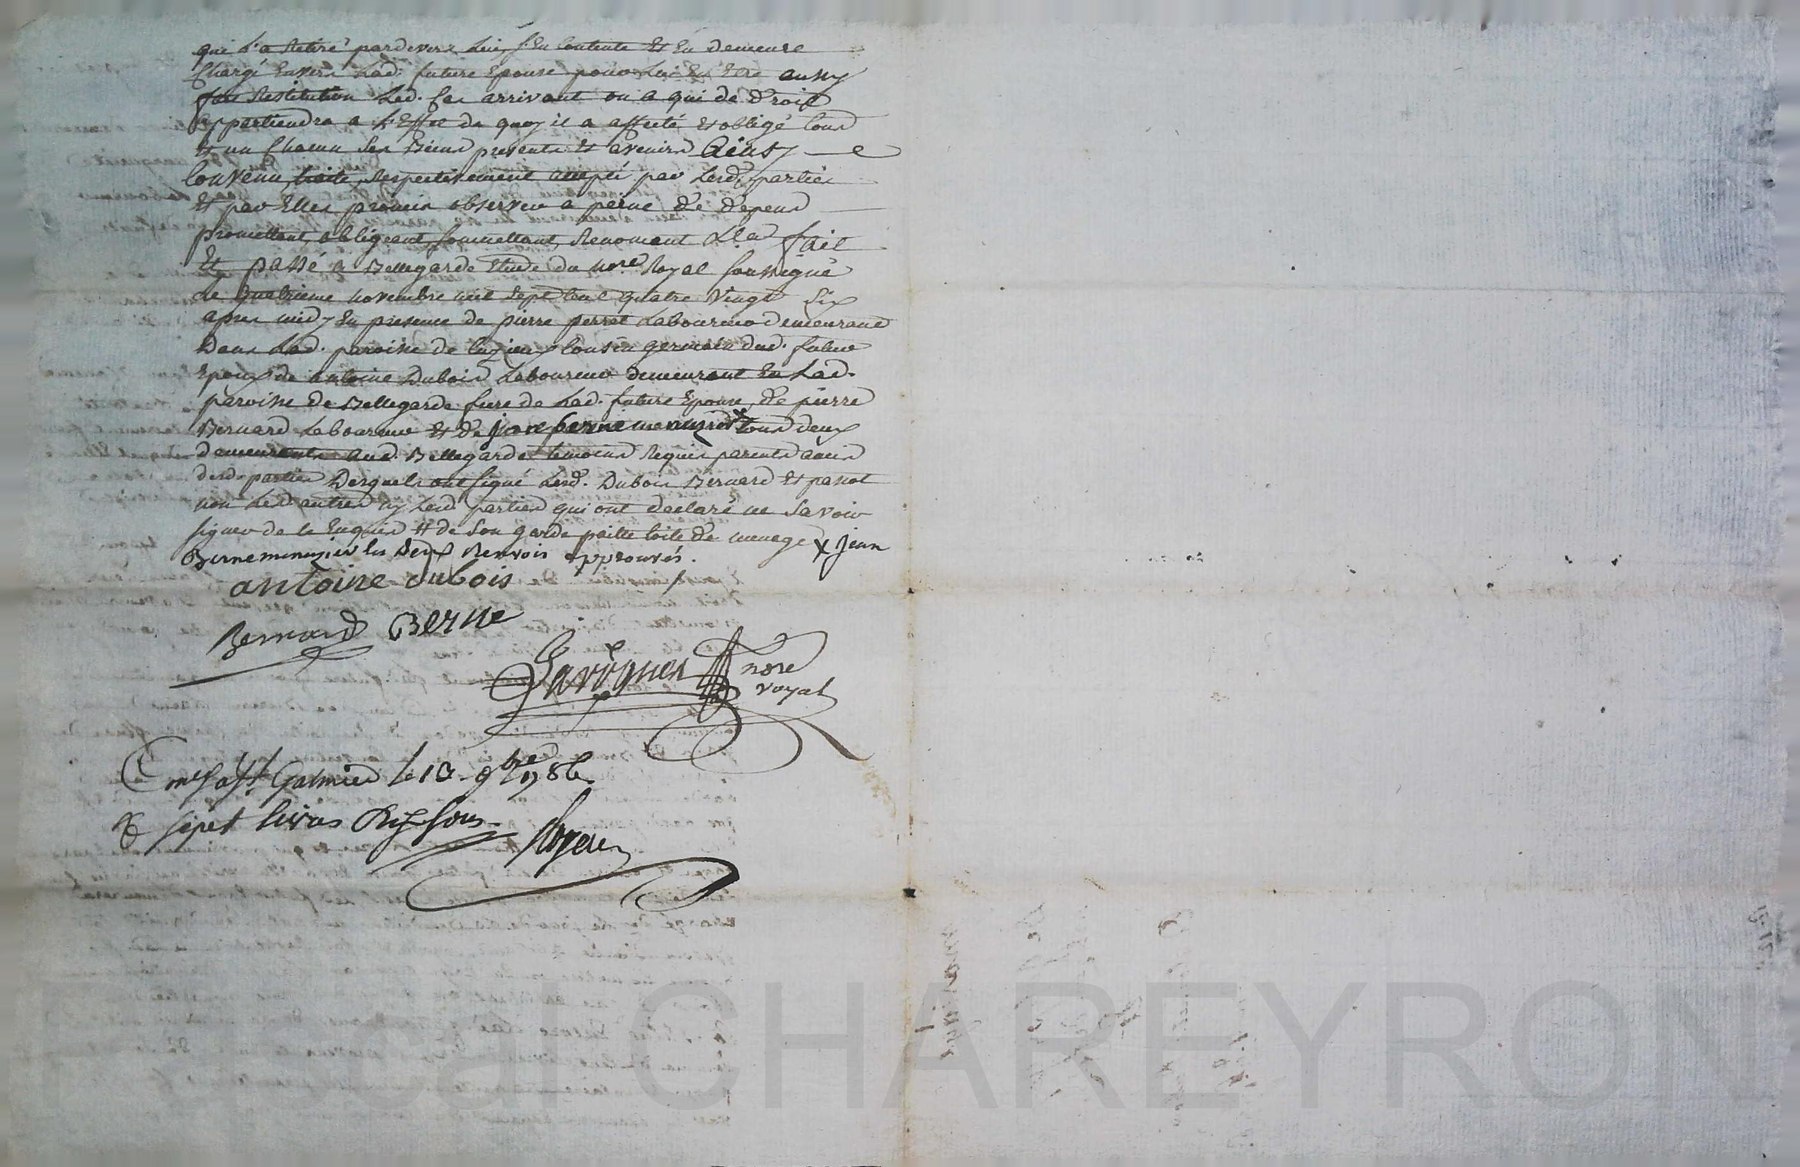 qui l'a Retiré pardevers Lui, s'En Contente Et En demeure
Chargé Envers Lad. future Epouse pour Lui En Etre aussy
fait Restitution Led. Cas arrivant ou a qui de Droit
appartiendra a L'Effet de quoy il a affecté Et obligé tous
Et un Chacun Ses Biens presents Et avenirs Ainsy
Convenu, traité, Respectivement accepté par Lesd. parties
Et par Elles promis observer a peine de depens
promettant, obligeant, soumettant, Renoncant &.a fait
Et passé a Bellegarde Etude du no.re Royal soussigné
Le quatrieme novembre mil sept Cent quatre Vingt Six
apres midy En presence de pierre perret Laboureur demeurant
Dans Lad. paroisse de Cuzieux Cousin germain dud. futur
Epoux de antoine Dubois Laboureur demeurant En Lad.
paroisse de Bellegarde frere de Lad. future Epouse, de pierre
Bernard Laboureur Et de jean berne menuzier x tous deux
demeurants aud. Bellegarde temoins Requis parents amis
desd. parties Desquels ont signé Lesd. Dubois Bernard Et
non Lesd. autres ny Lesd. parties qui ont declaré ne Savoir
signer de ce Enquis # de Son garde petite toite de menage x jean
Berne menuzier les deux Renvois approuvés.
antoine dubois
Bernard Berne
nore
royal
a St. Galmier le 13. 9bre 1786
R sept livres Dix sous
Pascal CHAREYRON